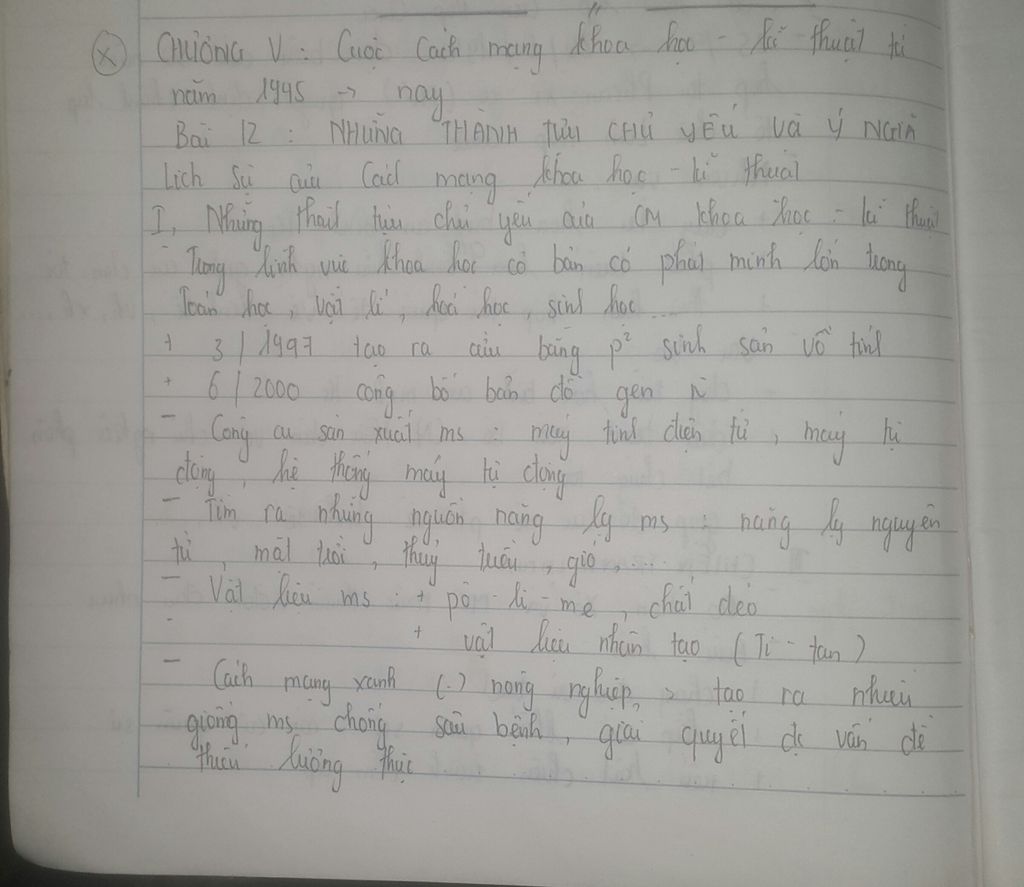 CHƯƠNG V : Cuộc Cách mạng khoa học - kĩ thuật từ
năm 1945 → nay
Bài 12 : NHỮNG THÀNH TỰU CHỦ YẾU VÀ Ý NGHĨA
Lịch Sử của Cách mạng khoa học - kĩ thuật
I, Những thành tựu chủ yếu của CM khoa học - kĩ thuật
- Trong lĩnh vực khoa học cơ bản có phát minh lớn trong
Toán học, vật lí, hoá học, sinh học...
+ 3/1997 tạo ra cừu bằng p² sinh sản vô tính
+ 6/2000 công bố bản đồ gen
- Công cụ sản xuất ms : máy tính điện tử, máy tự
động, hệ thống máy tự động
- Tìm ra những nguồn năng lg ms : năng lg nguyên
tử, mặt trời, thuỷ triều, gió,....
- Vật liệu ms : + pô - li - me, chất dẻo
+ vật liệu nhân tạo (Ti - tan)
- Cách mạng xanh (.) nông nghiệp, > tạo ra nhiều
giống ms chống sâu bệnh, giải quyết đc vấn đề
thiếu lương thực